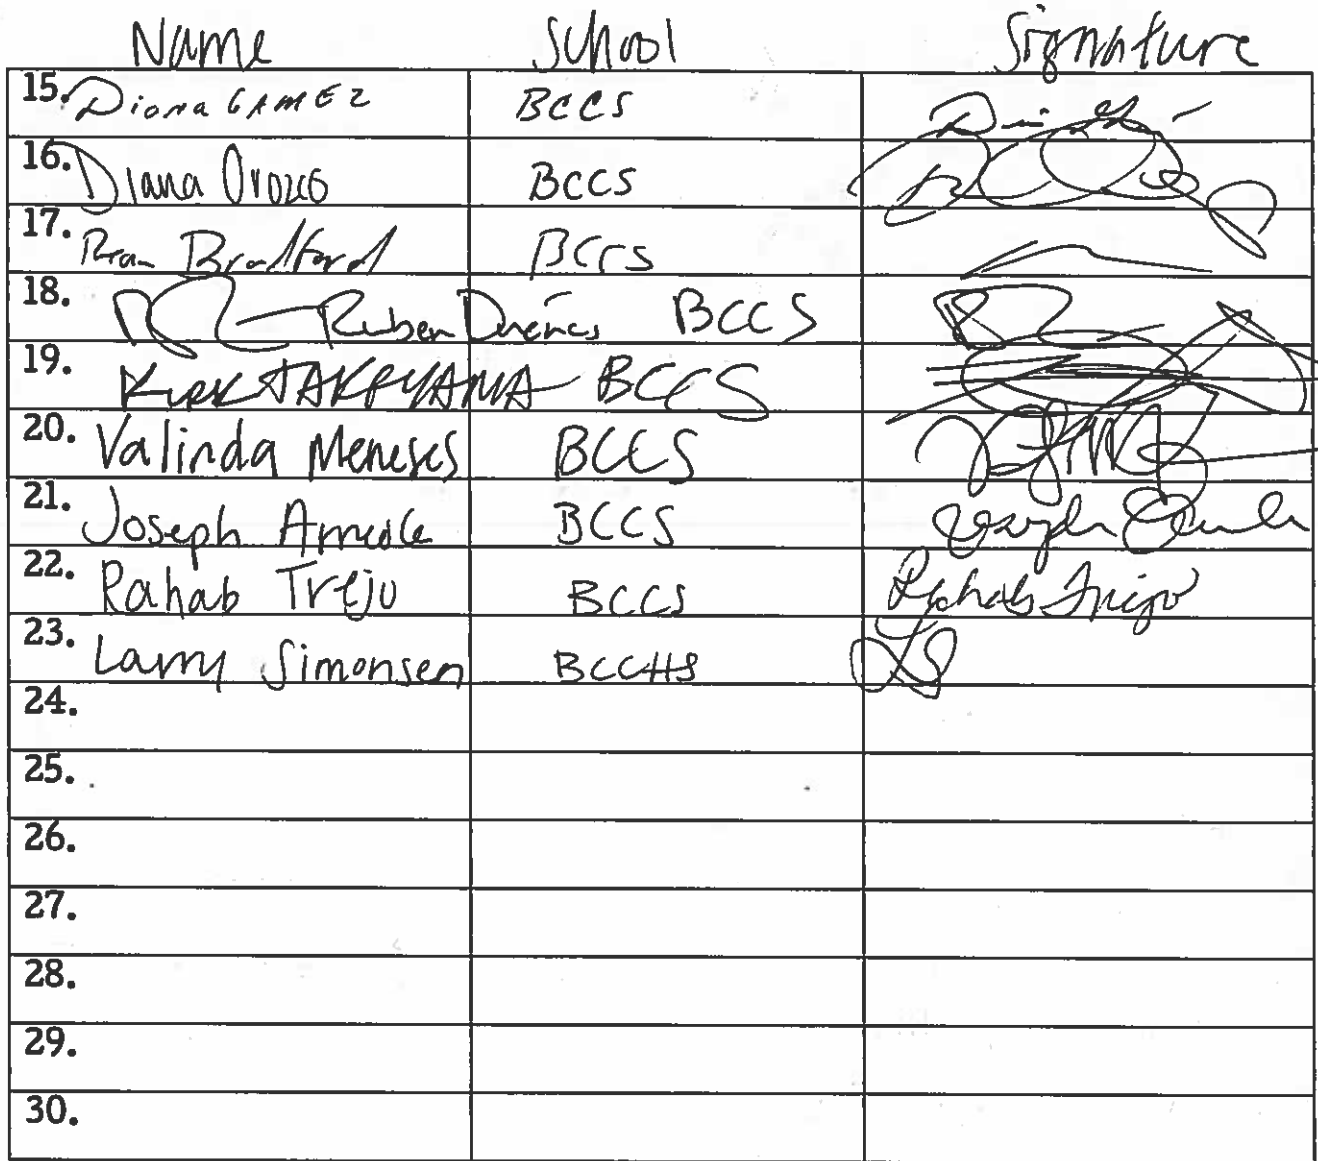 Name School Signature
15. Diana GAMEZ BCCS
16. Diana Orozco BCCS
17. Bradford BCCS
18. Ruben Dueñas BCCS
19. Kirk TAKEYAMA BCCS
20. Valinda Meneses BCCS
21. Joseph BCCS Joseph
22. Rahab Trejo BCCS Rahab Trejo
23. Larry Simonsen BCCHS LS
24.
25.
26.
27.
28.
29.
30.